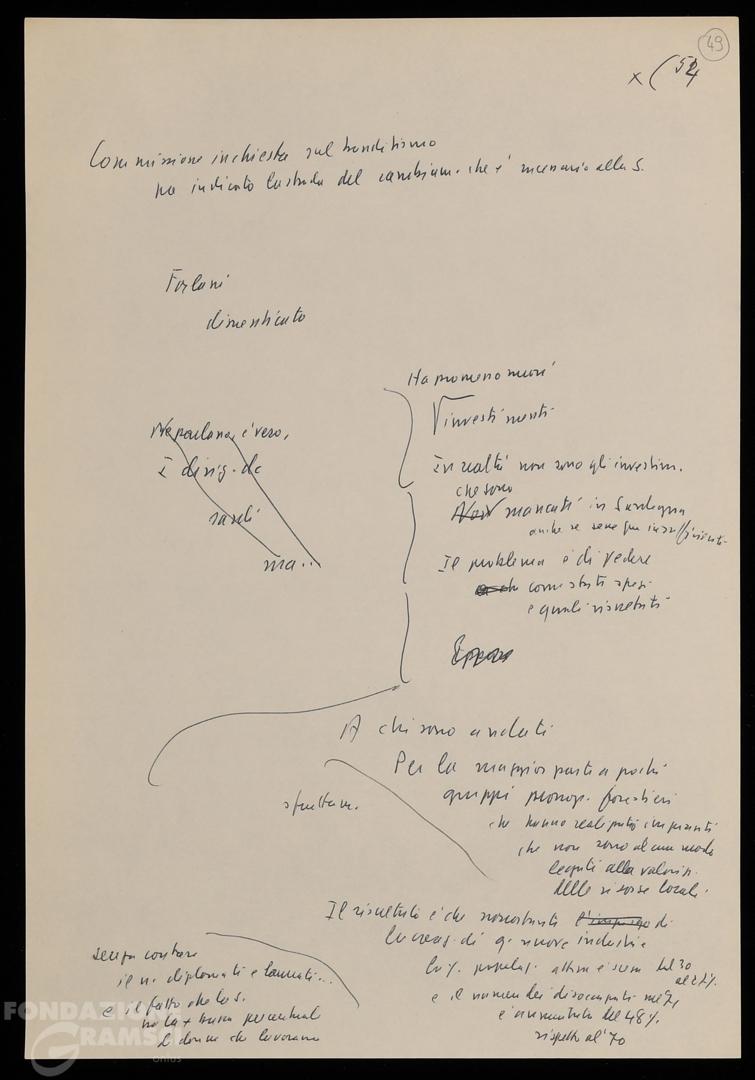 49
x ( 54
Commissione inchiesta sul banditismo
ha indicato la strada del cambiam. che è necessario alla S.
Forlani
dimenticato
Ha promesso nuovi
investimenti
Ne parlano, è vero,
I dirig. dc
sardi
ma..
In realtà non sono gli investim.
che sono
Non mancati in Sardegna
anche se sempre insufficienti
Il problema è di vedere
come stati spesi
e quali risultati
A chi sono andati
Per la maggior parte a pochi
gruppi monop. forestieri
sfruttam.
che hanno realizzato impianti
che non sono al cun modo
legati alla valoriz.
delle risorse locali.
Il risultato è che nonostante l'impiego di
la creaz. di q. nuove industrie
la % popolaz. attiva è scesa dal 30
al 27%.
e il numero dei disoccupati nel 74
è aumentato del 48%
rispetto al '70
senza contare
il n. diplomati e laureati...
e il fatto che la S.
ha la + bassa percentual
di donne che lavorano
FONDAZIONE
GRAMSCI
onlus